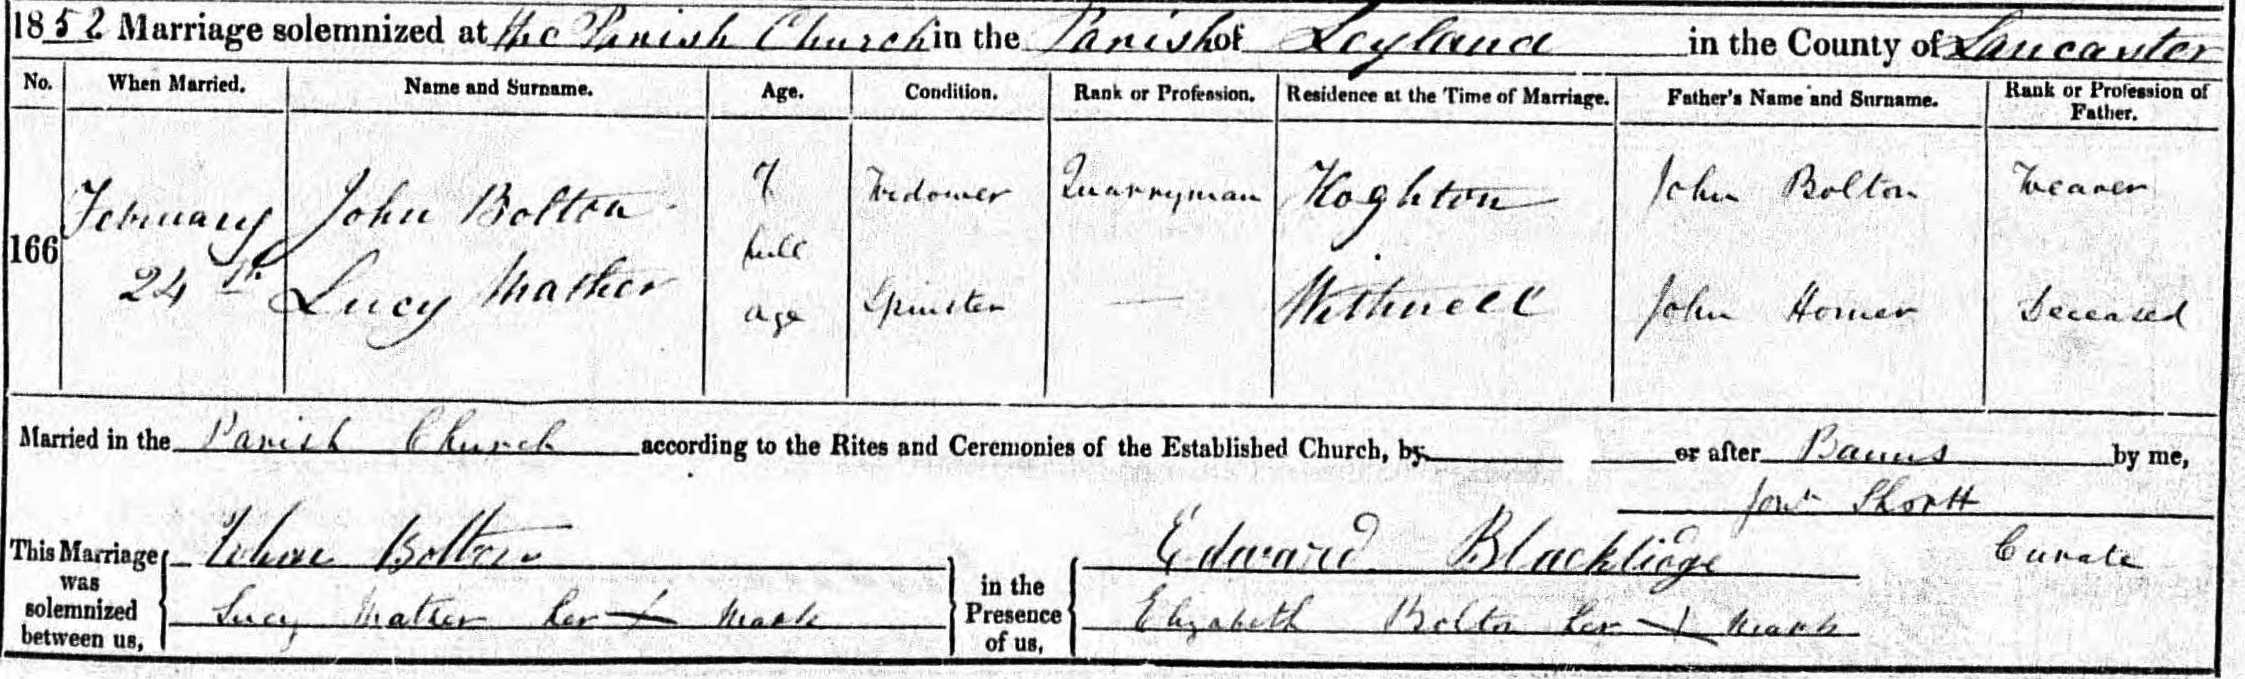 1852 Marriage solemnized at the Parish Church in the Parish of Leyland in the County of Lancaster
No. When Married. Name and Surname. Age. Condition. Rank or Profession. Residence at the Time of Marriage. Father's Name and Surname. Rank or Profession of Father.
166 February 24th
John Bolton of Widower Quarryman Hoghton John Bolton Weaver
full
Lucy Mather age Spinster — Withnell John Horner Deceased
Married in the Parish Church according to the Rites and Ceremonies of the Established Church, by or after Banns by me,
Shortt
Curate
This Marriage was solemnized between us,
John Bolton
Lucy Mather her X mark
in the Presence of us,
Edward Blacklidge
Elizabeth Bolton her X mark